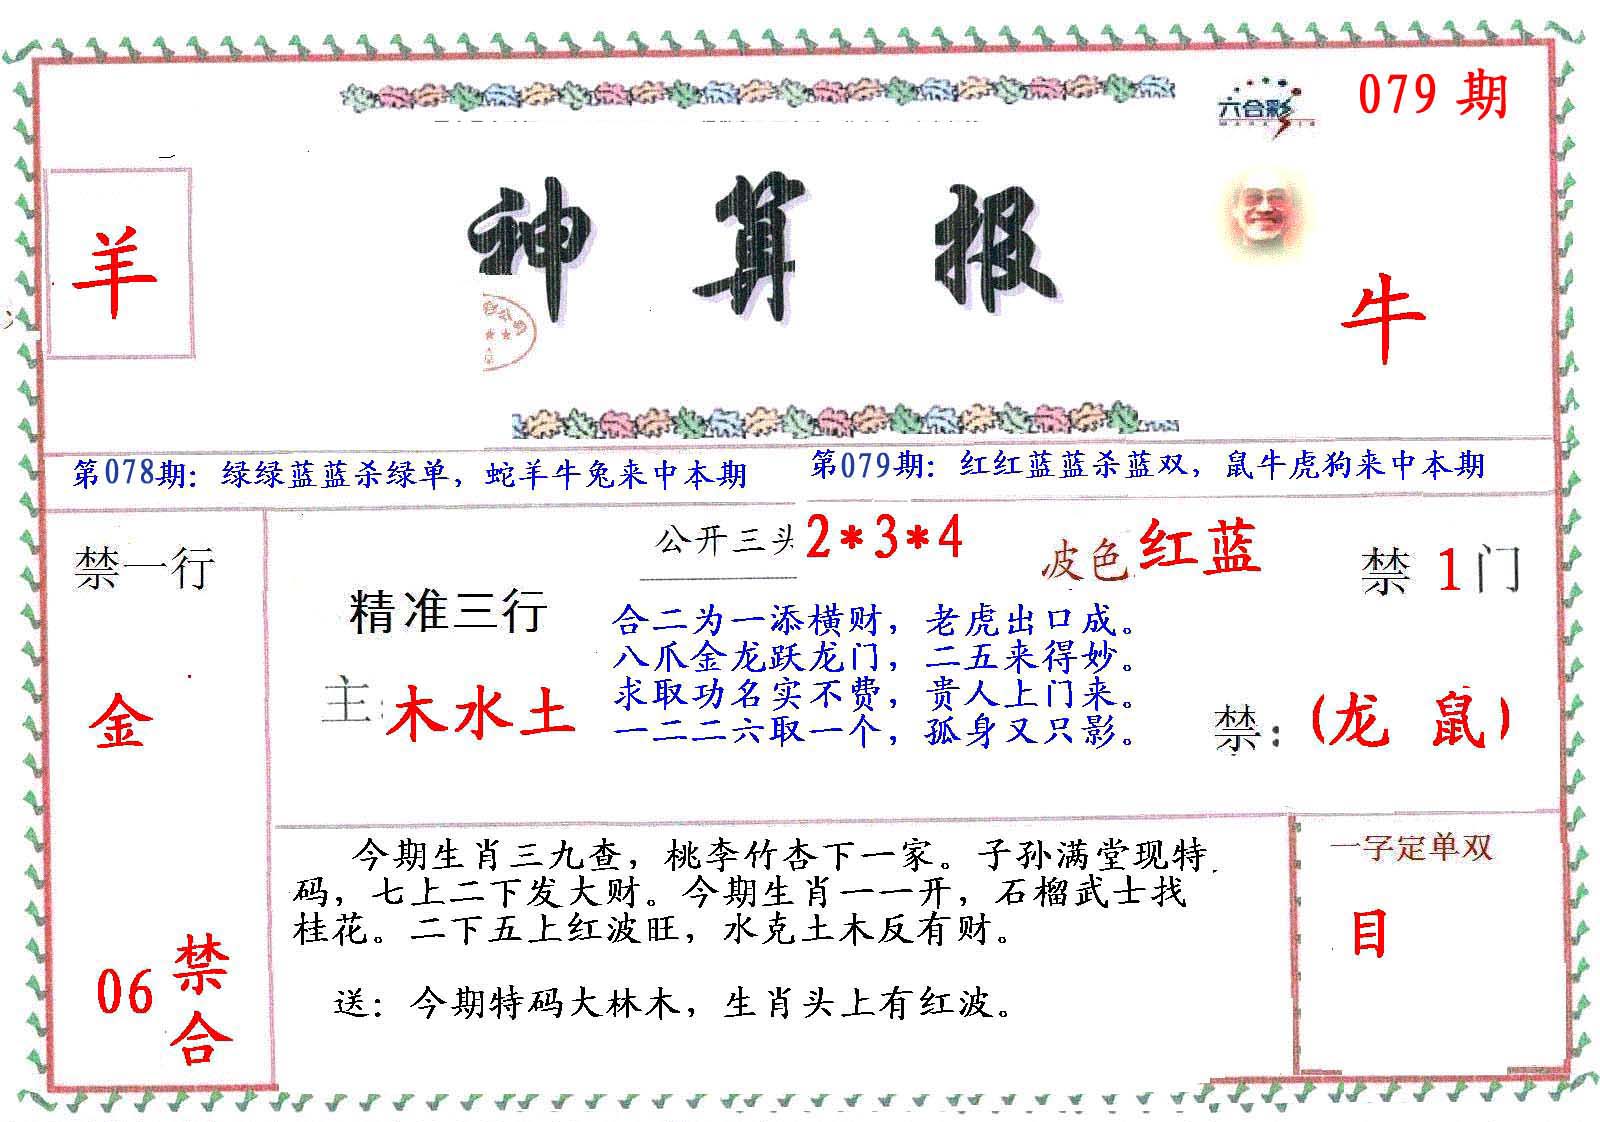 六合彩
079期
神算报
羊
牛
第078期：绿绿蓝蓝杀绿单，蛇羊牛兔来中本期
第079期：红红蓝蓝杀蓝双，鼠牛虎狗来中本期
禁一行
金
06禁合
精准三行
主：木水土
公开三头2*3*4
波色红蓝
禁1门
合二为一添横财，老虎出口成。
八爪金龙跃龙门，二五来得妙。
求取功名实不费，贵人上门来。
一二二六取一个，孤身又只影。
禁：(龙 鼠)
今期生肖三九查，桃李竹杏下一家。子孙满堂现特
码，七上二下发大财。今期生肖一一开，石榴武士找
桂花。二下五上红波旺，水克土木反有财。
送：今期特码大林木，生肖头上有红波。
一字定单双
目